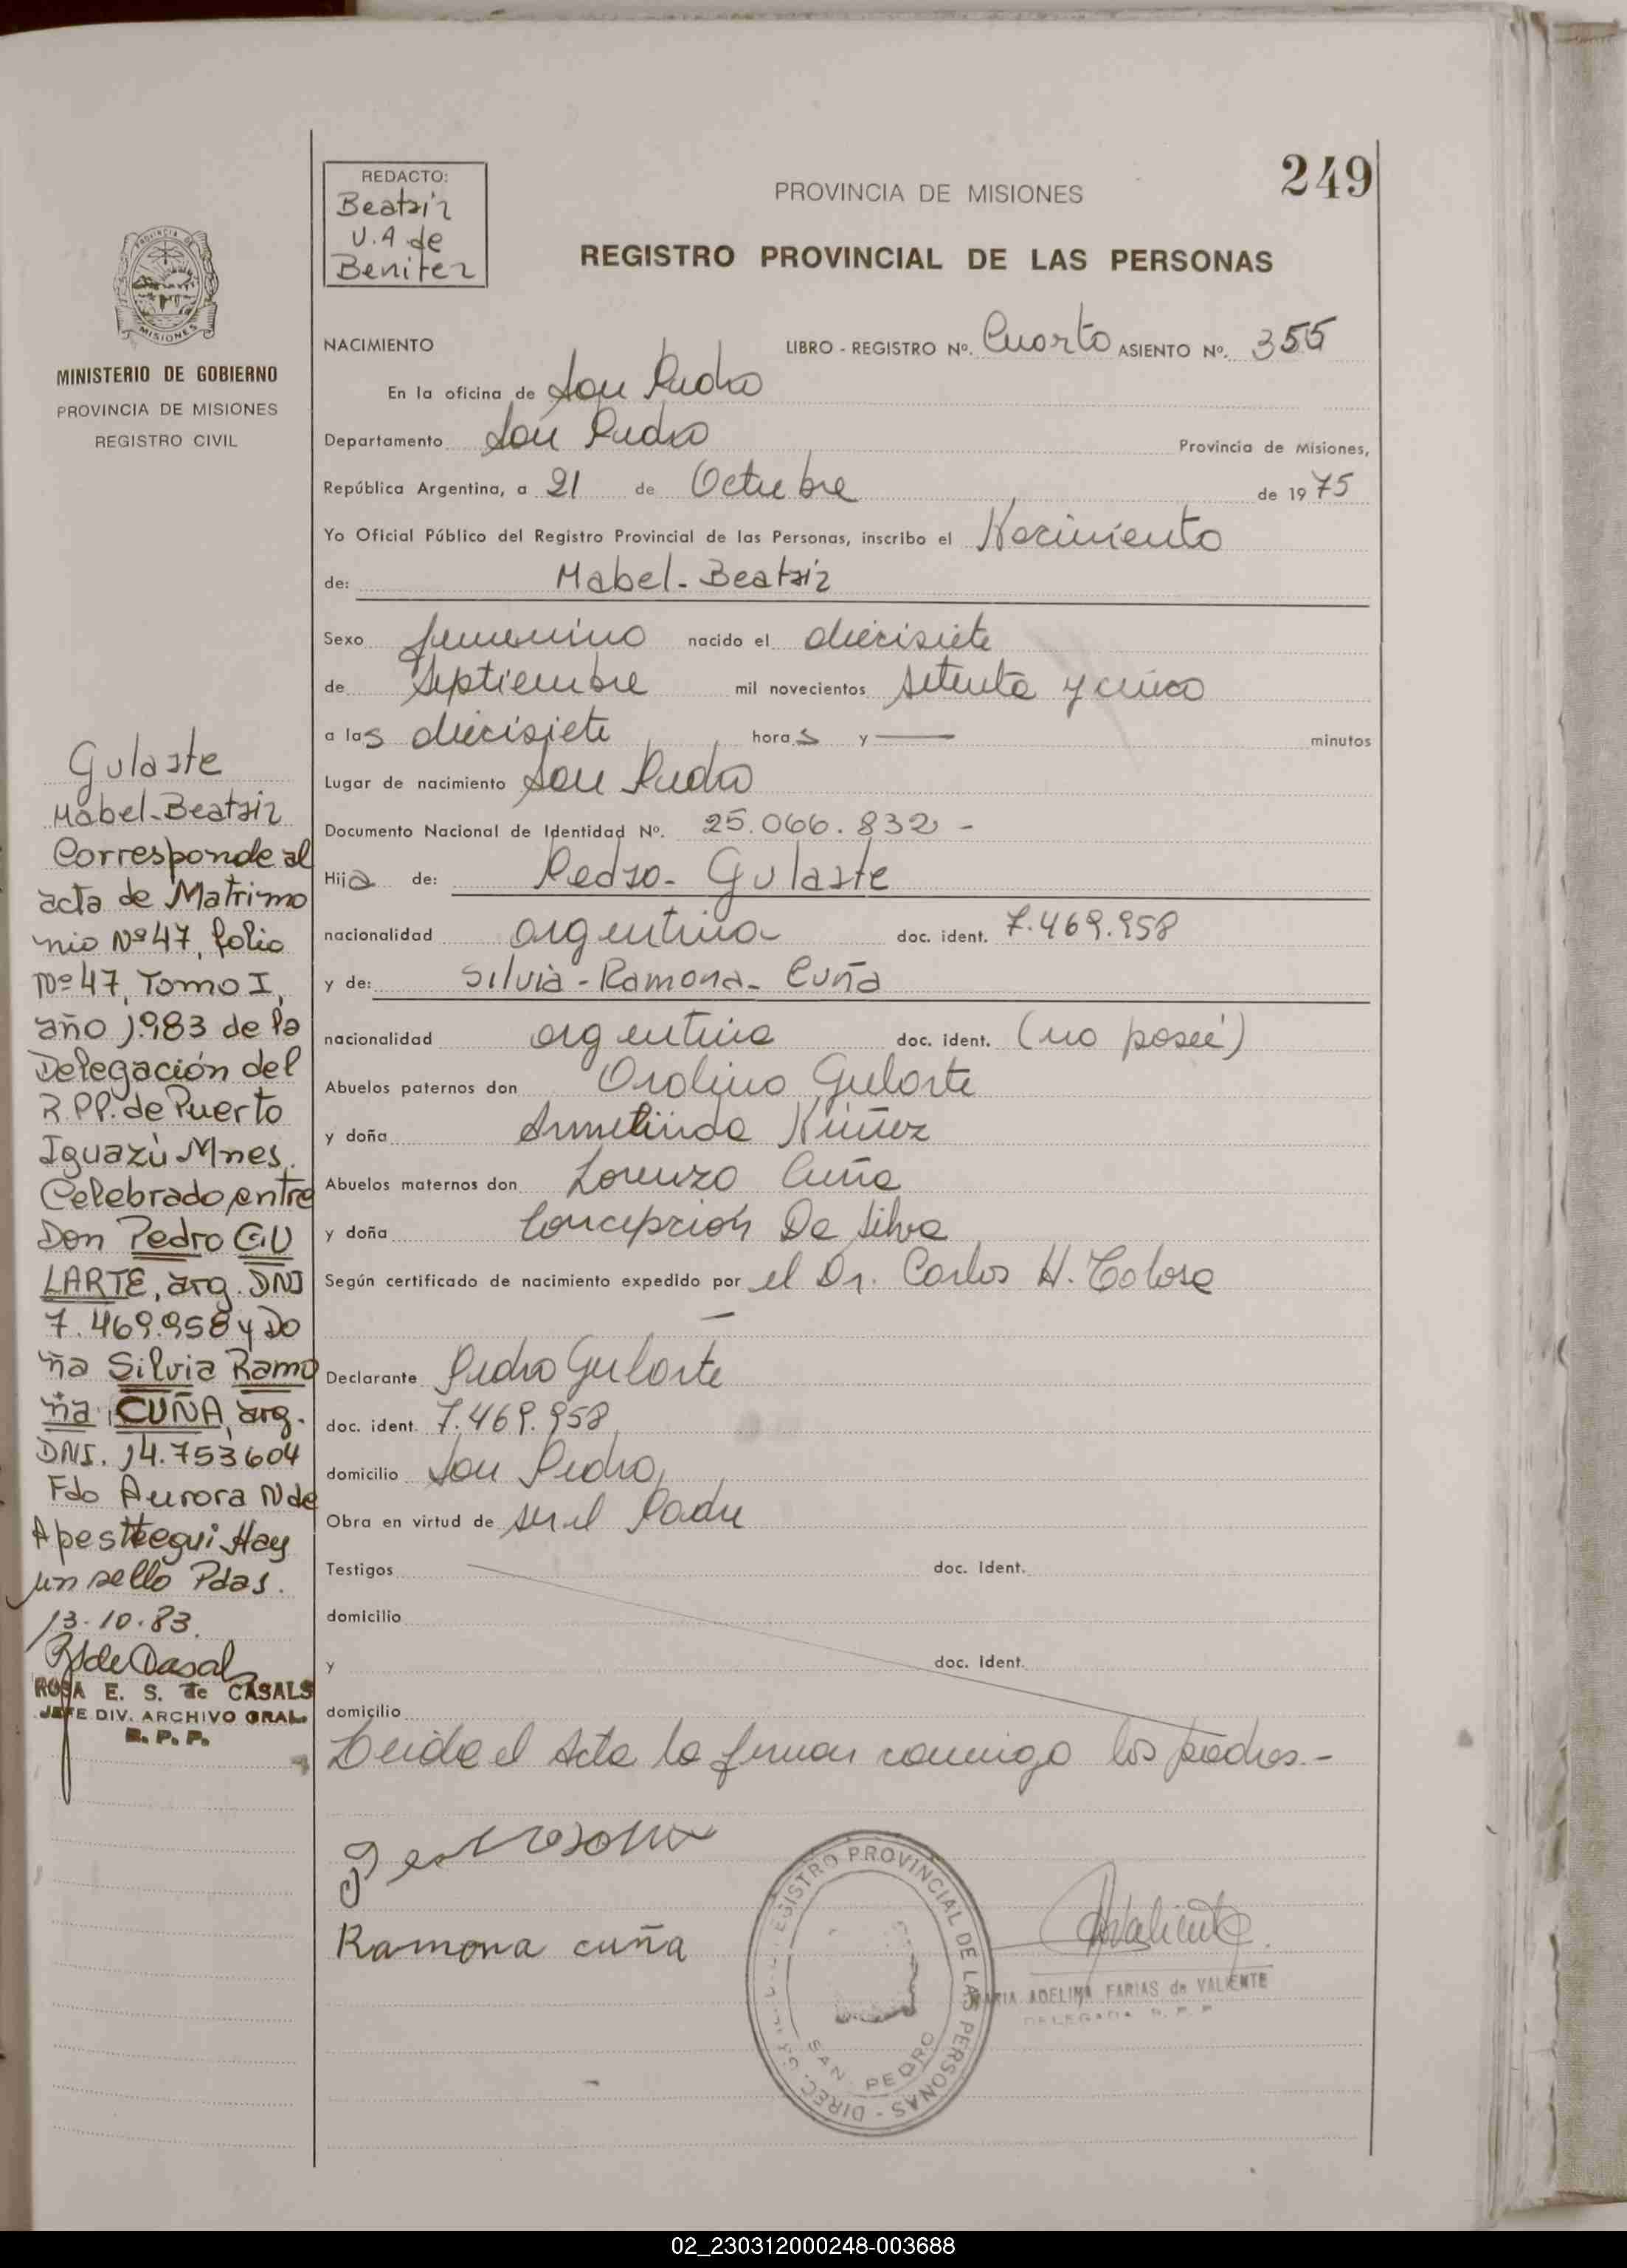 249
REDACTO:
Beatriz
U.A de
Benitez
PROVINCIA DE MISIONES
REGISTRO PROVINCIAL DE LAS PERSONAS
PROVINCIA DE
MISIONES
MINISTERIO DE GOBIERNO
PROVINCIA DE MISIONES
REGISTRO CIVIL
NACIMIENTO LIBRO - REGISTRO Nº. Cuarto ASIENTO Nº. 355
En la oficina de San Pedro
Departamento San Pedro Provincia de Misiones,
República Argentina, a 21 de Octubre de 1975
Yo Oficial Público del Registro Provincial de las Personas, inscribo el Nacimiento
de: Mabel-Beatriz
Sexo femenino nacido el diecisiete
de Septiembre mil novecientos setenta y cinco
a las diecisiete horas y — minutos
Lugar de nacimiento San Pedro
Documento Nacional de Identidad Nº. 25.066.832 -
Hija de: Pedro- Gularte
nacionalidad argentina doc. ident. 7.469.958
y de: Silvia-Ramona- Cuña
nacionalidad argentina doc. ident. (no poseé)
Abuelos paternos don Orolino Gularte
y doña Armelinda Núñez
Abuelos maternos don Lorenzo Cuña
y doña Concepción Da Silva
Según certificado de nacimiento expedido por el Dr. Carlos H. Tolosa
—
Declarante Pedro Gularte
doc. ident. 7.469.958
domicilio San Pedro,
Obra en virtud de ser el Padre
Testigos doc. Ident.
domicilio
y doc. Ident.
domicilio
Leida el Acta la firman conmigo los padres.-
Ramona cuña
REGISTRO PROVINCIAL DE LAS PERSONAS - DIREC. GRAL.
SAN PEDRO
MARIA ADELINA FARIAS de VALIENTE
DELEGADA R. P. P.
Gularte
Mabel-Beatriz
Corresponde al
acta de Matrimo
nio Nº47, folio
Nº47, Tomo I,
año 1.983 de la
Delegación del
R.PP. de Puerto
Iguazù Mnes.
Celebrado entre
Don Pedro GU
LARTE, arg. DNI
7.469.958 y Do
ña Silvia Ramo
na CUÑA, arg.
DNI. 14.753604
Fdo Aurora N de
Apesteegui Hay
un sello Pdas.
13.10.83.
RSde Casals
ROSA E. S. de CASALS
JEFE DIV. ARCHIVO GRAL.
R. P. P.
02_230312000248-003688